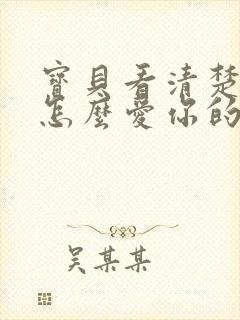 寶貝看清楚
怎麼愛你的
吴某某